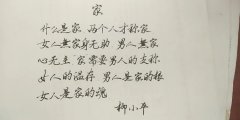 家
什么是家 两个人才称家
女人无家身无助 男人无家
心无主 家需要男人的支称
女人的温存 男人是家的根
女人是家的魂
柳小平